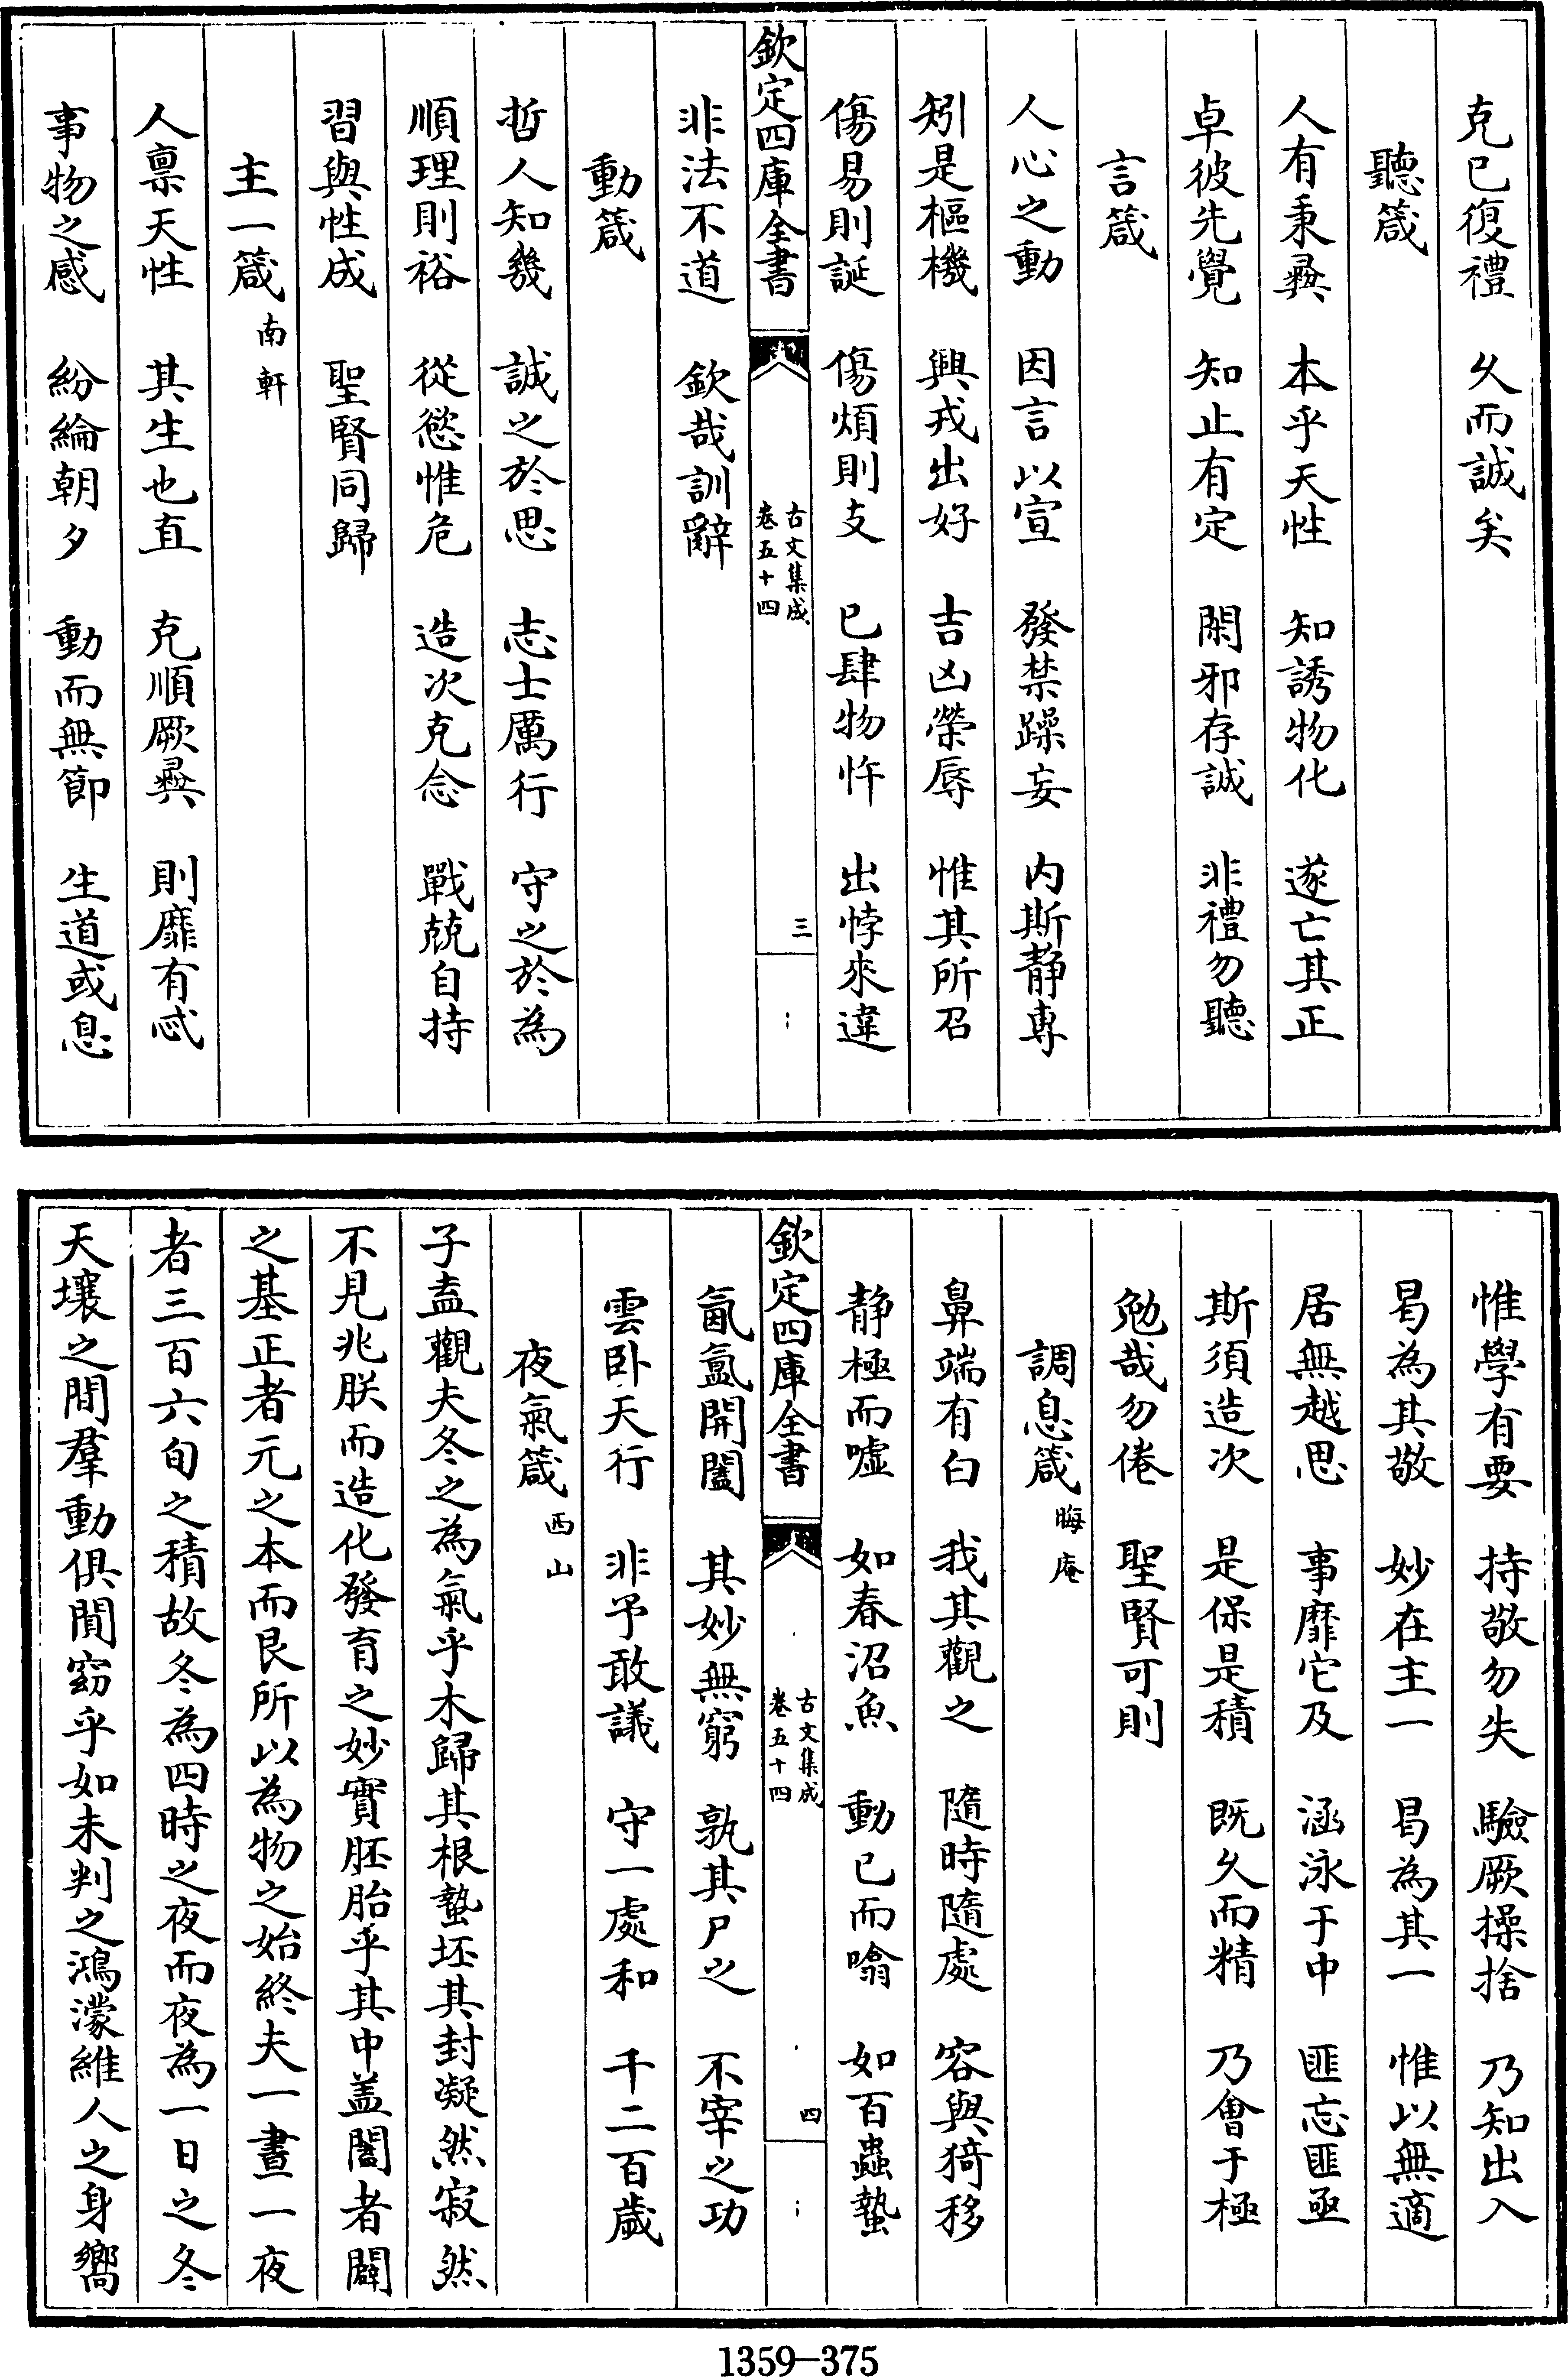 克已復禮　久而誠矣
聽箴
人有秉彛　本乎天性　知誘物化　遂亡其正
卓彼先覺　知止有定　閑邪存誠　非禮勿聽
言箴
人心之動　因言以宣　發禁躁妄　内斯静專
矧是樞機　興戎出好　吉凶榮辱　惟其所召
傷易則誕　傷煩則支　已肆物忤　出悖來違
欽定四庫全書
古文集成
卷五十四
三
非法不道　欽哉訓辭
動箴
哲人知幾　誠之於思　志士厲行　守之於為
順理則裕　從慾惟危　造次克念　戰兢自持
習與性成　聖賢同歸
主一箴 南軒
人禀天性　其生也直　克順厥彛　則靡有忒
事物之感　紛綸朝夕　動而無節　生道或息
惟學有要　持敬勿失　驗厥操捨　乃知出入
曷為其敬　妙在主一　曷為其一　惟以無適
居無越思　事靡它及　涵泳于中　匪忘匪亟
斯須造次　是保是積　既久而精　乃會于極
勉哉勿倦　聖賢可則
調息箴 晦庵
鼻端有白　我其觀之　隨時隨處　容與猗移
静極而噓　如春沼魚　動已而噏　如百蟲蟄
欽定四庫全書
古文集成
卷五十四
四
氤氳開闔　其妙無窮　孰其尸之　不宰之功
雲卧天行　非予敢議　守一處和　千二百歲
夜氣箴 西山
子盍觀夫冬之為氣乎木歸其根蟄坯其封凝然寂然
不見兆朕而造化發育之妙實胚胎乎其中盖闔者闢
之基正者元之本而艮所以為物之始終夫一晝一夜
者三百六旬之積故冬為四時之夜而夜為一日之冬
天壤之間羣動俱閴窈乎如未判之鴻濛維人之身嚮
1359-375